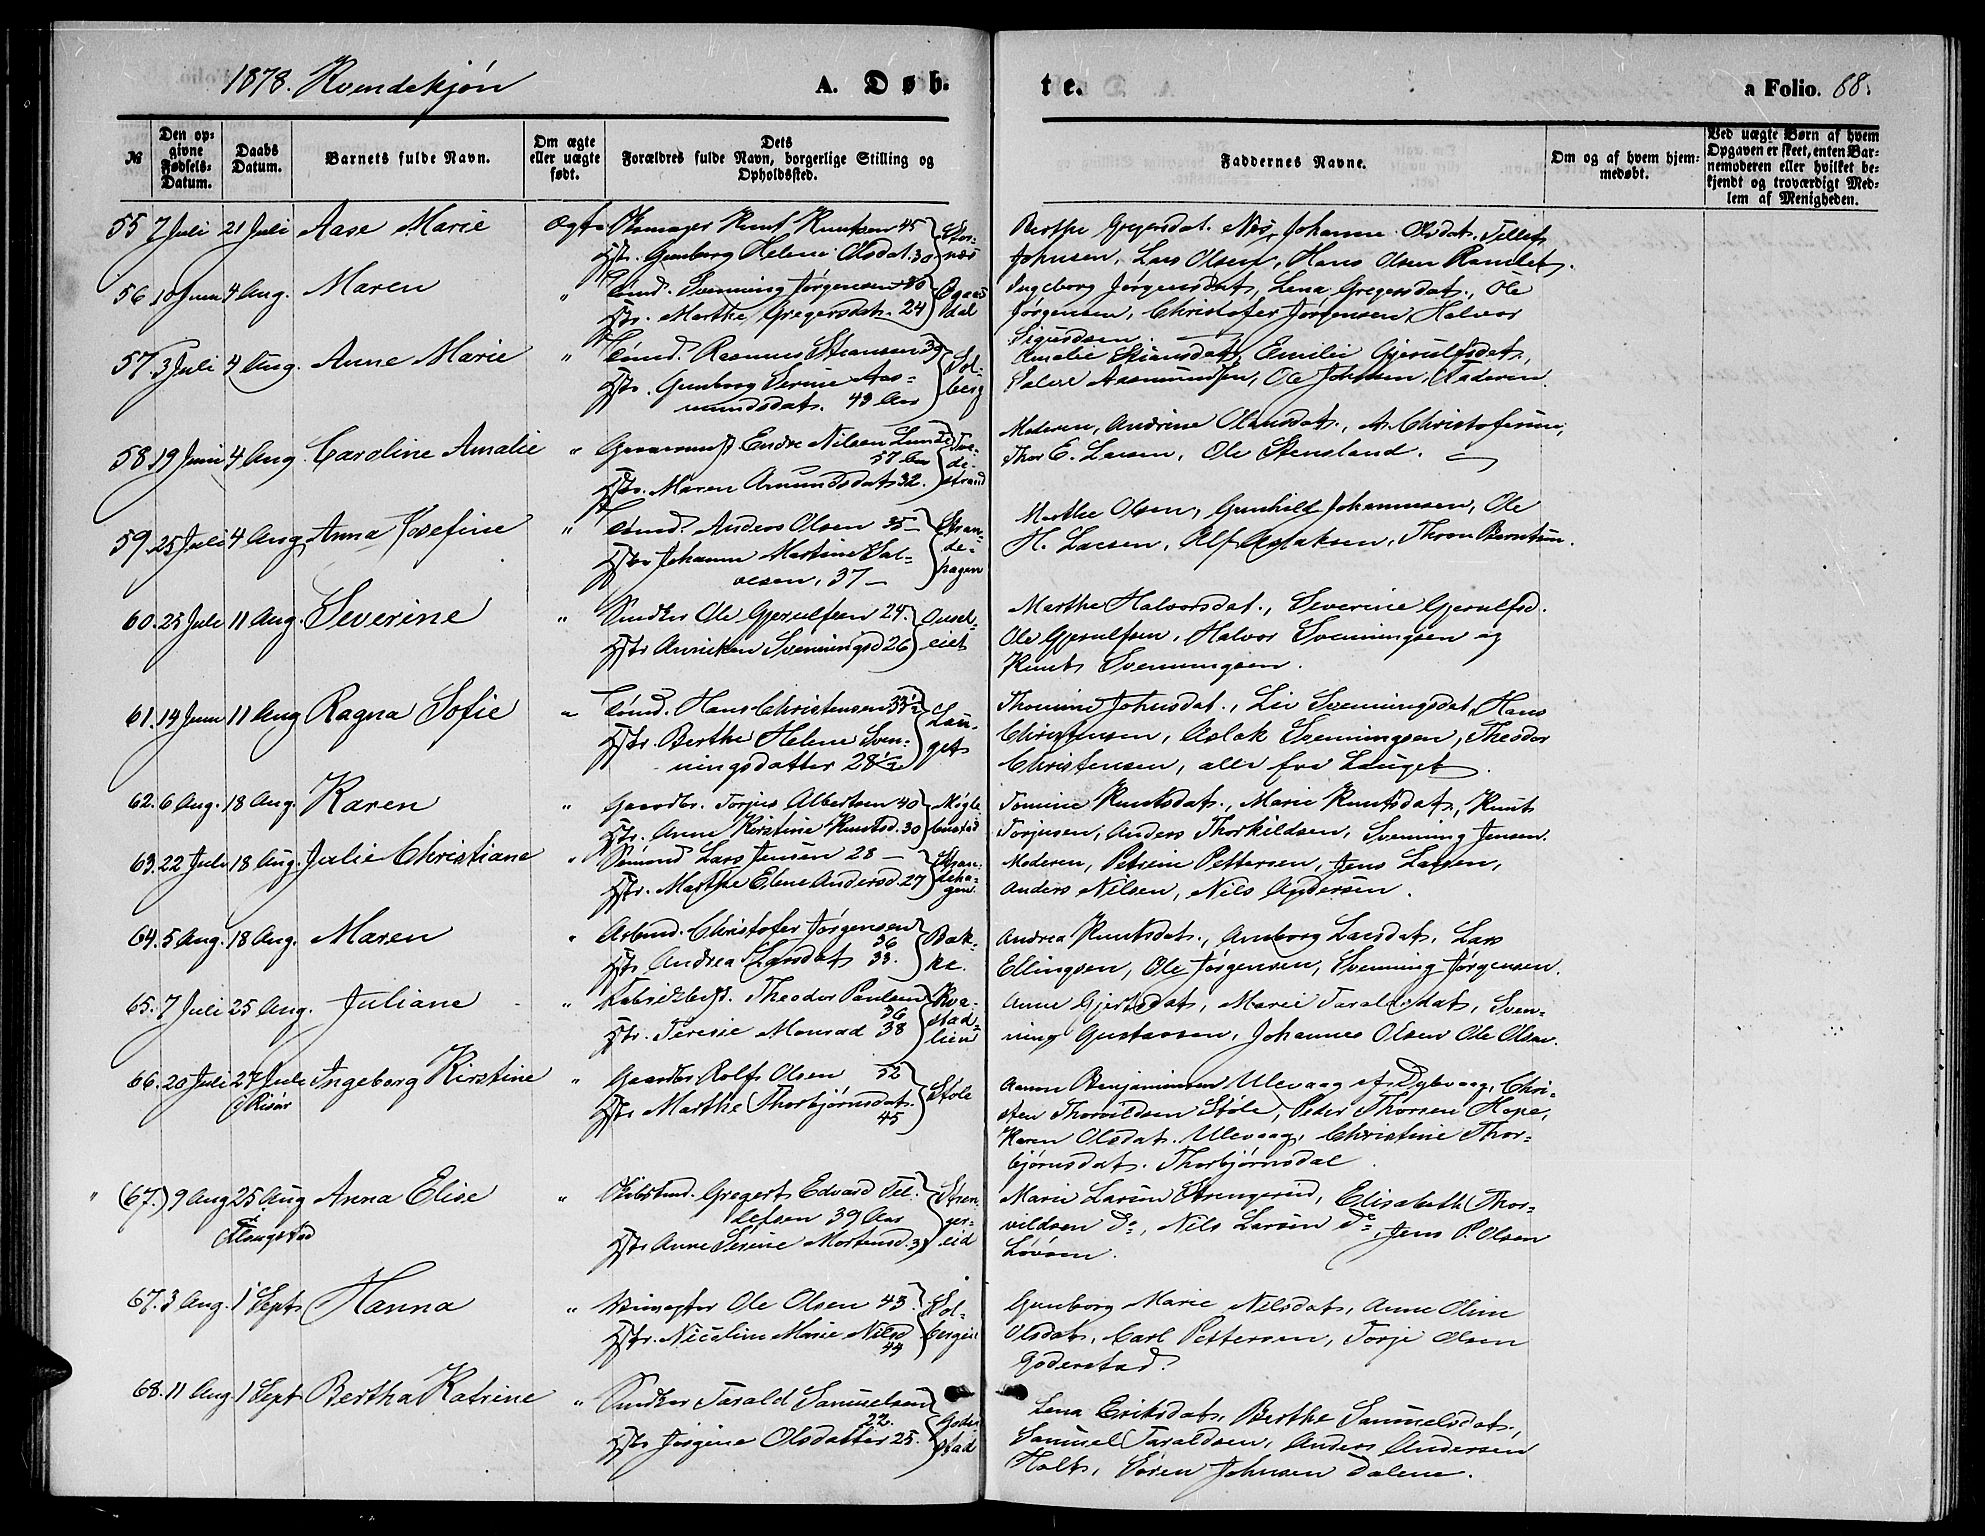 1878. Kvindekjøn
A. Døb-
te.
a Folio. 88.
№
Den op-
givne
Fødsels-
Datum.
Daabs
Datum.
Barnets fulde Navn.
Om ægte
eller uægte
født.
Dets
Forældres fulde Navn, borgerlige Stilling og
Opholdssted.
Faddernes Navne.
Om og af hvem hjem-
medøbt.
Ved uægte Børn af hvem
Opgaven er skeet, enten Bar-
nemoderen eller hvilket be-
kjendt og troværdigt Med-
lem af Menigheden.
55 7 Juli 21 Juli Aase Marie Ægte Knut Knutsen 45
Hstr. Gunborg Helene Olsdat. 30
Berthe Gregersdat. Næs, Johanne Olsdat. Tellef
Johnsen, Lars Olsen, Hans Olsen Ramlet.
56 10 Juni 4 Aug. Maren " Sømd. Svenning Jørgensen 30
Hstr. Marthe Gregersdat. 24
Ingeborg Jørgensdat., Lena Gregersdat., Ole
Jørgensen, Christofer Jørgensen, Halvor
Sigurdsen.
57. 3 Juli 4 Aug. Anne Marie " Sømd. Rasmus Stiansen 39 Sol-
Hstr. Gunborg Serine Aas- berg
mundsdat. 43 Aar
Amalie Stiansdat., Emilie Gjerulfsdat.,
Salve Aasmundsen, Ole Johnsen, Faderen.
58 19 Juni 4 Aug. Caroline Amalie " Endre Nilsen Lunde Tve-
57 Aar de-
Hstr. Maren Amundsdat. 32. strand
Moderen, Andrine Olausdat., A. Christofersen,
Thor E. Larsen, Ole Stensland.
59. 25 Juli 4 Aug. Anna Josefine " Sømd. Anders Olsen 35 – Stran-
Hstr. Johanne Martine Sal- de-
vesen, 37 – hagen
Marthe Olsen, Gunhild Johannesen, Ole
H. Larsen, Alf Aslaksen, Thron Berntsen.
60. 25 Juli 11 Aug. Severine " Snedker Ole Gjerulfsen 24.
Hstr Anniken Svenningsd 26 eiet
Marthe Halvorsdat., Severine Gjerulfsd.
Ole Gjerulfsen, Halvor Svenningsen og
Knut Svenningsen.
61. 14 Juni 11 Aug Ragna Sofie " Sømd. Hans Christensen 33½ Lau-
Hstr. Berthe Helene Sven- get
ningsdatter 28½
Thomine Johnsdat., Liv Svenningsdat, Hans
Christensen, Aslak Svenningsen, Theodor
Christensen, alle fra Lauget.
62. 6 Aug. 18 Aug. Karen " Gaardbr. Torjus Albertsen 40 Møgle-
Hstr. Anne Kirstine Knutsd. 30 bustad
Tomine Knutsdat., Marie Knutsdat, Knut
Torjusen, Anders Thorkildsen, Svenning Jensen.
63. 22 Juli 18 Aug. Julie Christiane " Sømand Lars Jensen 28 – Stran-
Hstr. Marthe Elene Andersd. 27 deha-
gen
Moderen, Petrine Pettersen, Jens Larsen,
Anders Nilsen, Nils Andersen.
64. 5 Aug. 18 Aug. Maren " Arbmd. Christofer Jørgensen Bak-
36
Hstr Andrea Larsdat 33. ke.
Andrea Knutsdat., Anborg Larsdat, Lars
Ellingsen, Ole Jørgensen, Svenning Jørgensen.
65. 7 Juli 25 Aug. Juliane " Theodor Paulsen Kva-
36 stad-
Hstr. Teresie Monrad 38 lien
Anne Gjertsdat, Marie Taraldsdat, Sven-
ning Gustavsen, Johannes Olsen Ole Olsen.
66. 20 Juli 27 Juli Ingeborg Kirstine " Gaardbr Rolf Olsen 52
i Risør Hstr Marthe Thorbjørnsdat. Støle
45
Aanon Benjaminsen Ulevaag af Dybvaag, Chri-
sten Thorvildsen Støle, Peder Thorsen Hope,
Karen Olsdat. Ulevaag, Christine Thor-
bjørnsdat. Thorbjørnsdal.
" (67.) 9 Aug 25 Aug Anna Elise " Skibstmd. Gregert Edvard Tel- Stren-
i Flangstad lefsen 39 Aar ger-
Hstr Anne Serine Mortensd. 3 eid
Marie Larsen Strengereid, Elisabeth Thor-
vildsen do, Nils Larsen do, Jens P. Olsen
67. 3 Aug. 1 Sept Hanna " Ole Olsen 43 Sol-
Hstr. Nicoline Marie Nilsd bergeie
44
Gunborg Marie Nilsdat, Anne Oline
Olsdat, Carl Pettersen, Torje Olsen
Goderstad.
68. 11 Aug. 1 Sept Bertha Katrine " Snedker Tarald Samuelsen
22. Goder
Hstr Jørgine Olsdatter 25. stad
Lena Eriksdat, Berthe Samuelsdat,
Samuel Taraldsen, Anders Andersen
Holt, Søren Johnsen Dalene.